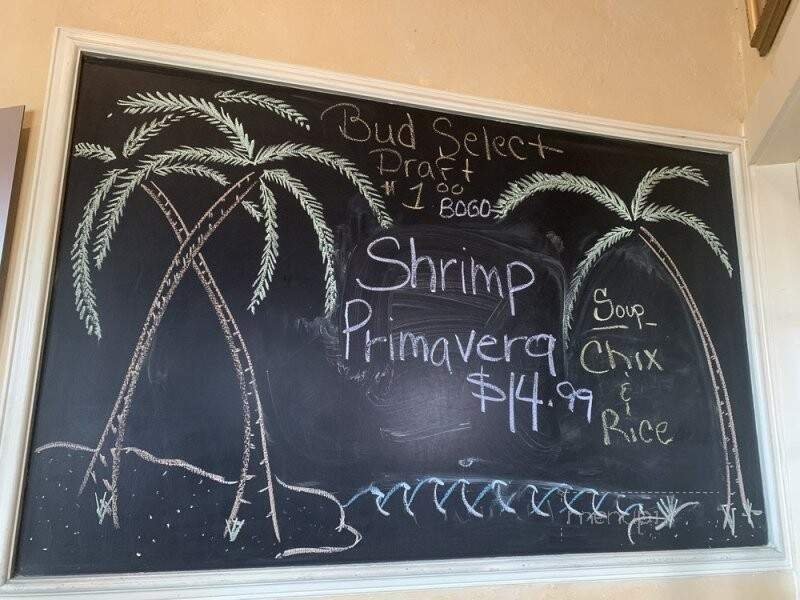 Bud Select
Draft
$1.00
BOGO
Shrimp
Primavera
$14.99
Soup
Chix
&
Rice
menupix